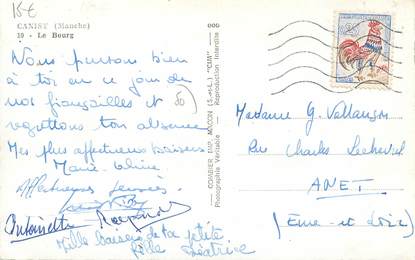 15€
CANISY (Manche)
10 - Le Bourg
Nous pensons bien
à toi en ce jour de
nos fiançailles et
regrettons ton absence
Mes plus affectueux baisers
Marie
Affectueuses pensées
Antoinette
Mille baisers de ta petite
fille Béatrice
COMBIER IMP. MACON (S.-et-L.) "CIM"
Photographie Véritable - Reproduction Interdite
Madame G.
Rue Charles
ANET
(Eure-et-Loir)